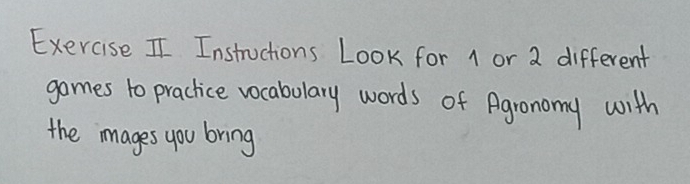 Exercise II Instructions Look for 1 or 2 different
games to practice vocabulary words of Agronomy with
the images you bring